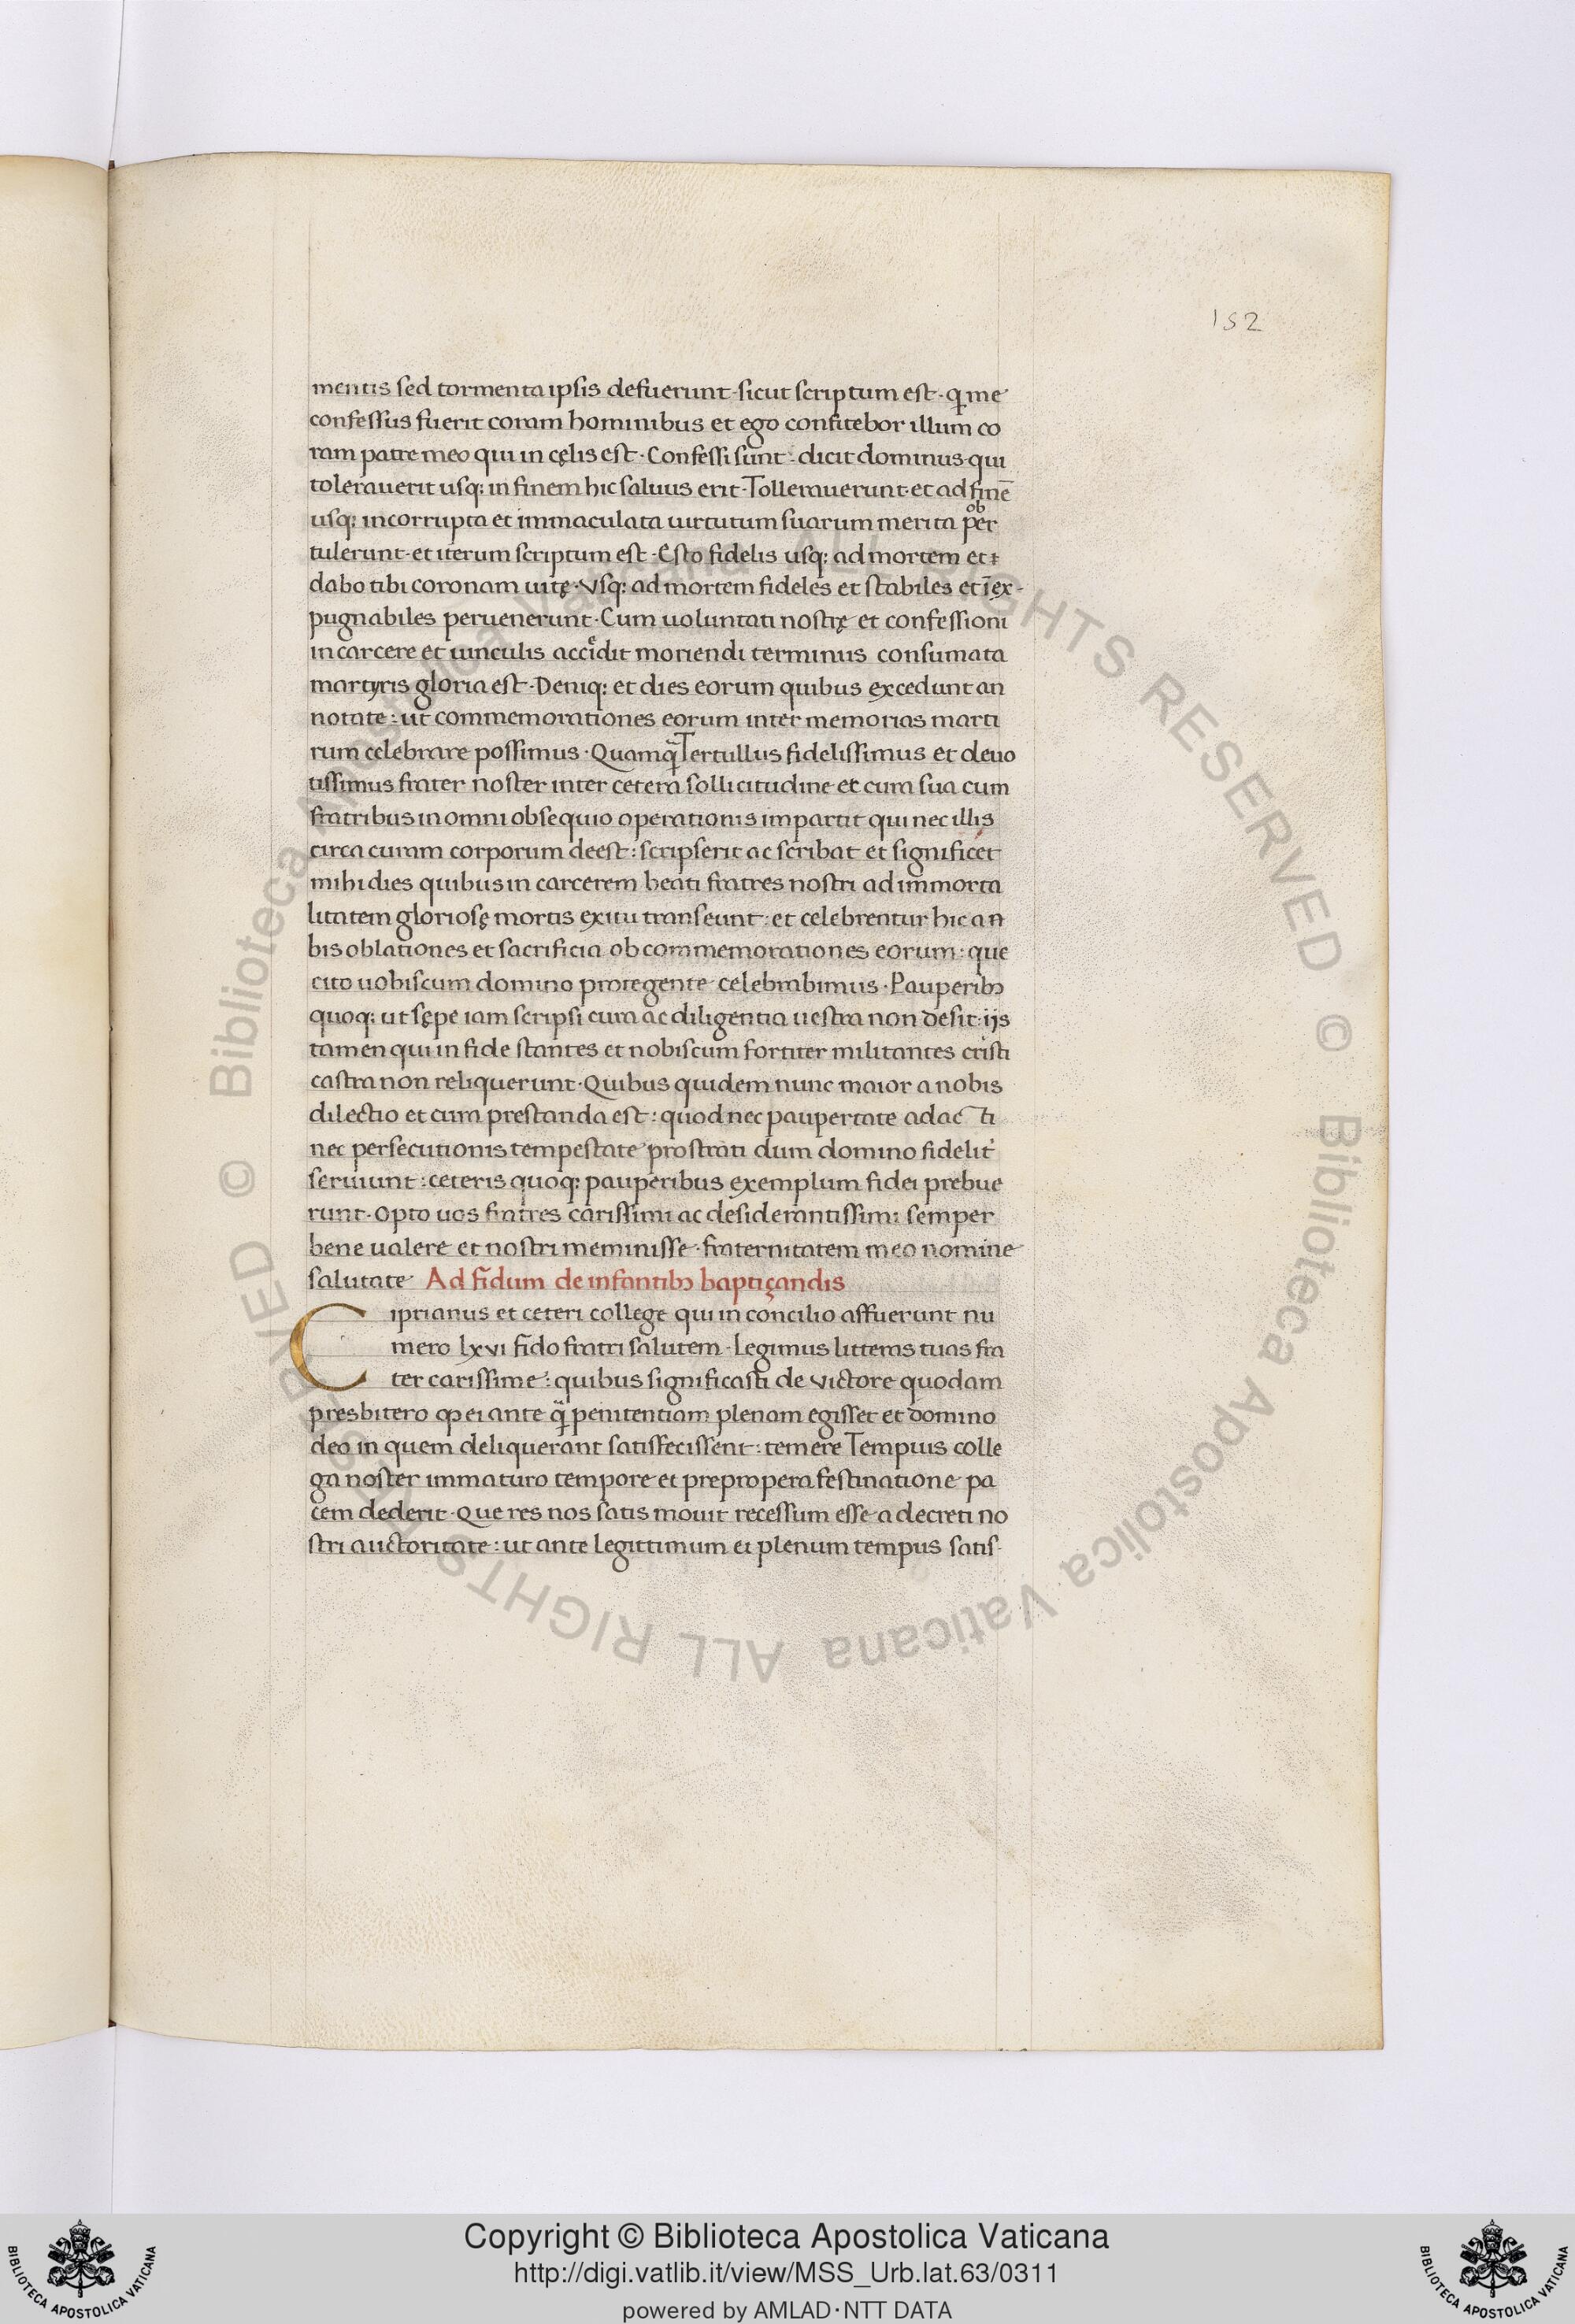 152
mentis sed tormenta ipsis defuerunt · sicut scriptum est · q̱ me
confessus fuerit coram hominibus et ego confitebor illum co
ram patre meo qui in cęlis est · Confessi sunt : dicit dominus · qui
toleraverit usq; in finem hic salvus erit · Tolleraverunt · et ad finē
ob
usq; incorrupta et immaculata uirtutum suarum merita per
tulerunt · et iterum scriptum est · Esto fidelis usq; ad mortem et
dabo tibi coronam uitę · Vsq; ad mortem fideles et stabiles et īex-
pugnabiles peruenerunt · Cum uoluntati nostrę et confessioni
in carcere et uinculis accidit moriendi terminus consumata
martyris gloria est · Deniq; et dies eorum quibus excedunt an
notate : ut commemorationes eorum inter memorias marti
rum celebrare possimus · Quamq̄ Tertullus fidelissimus et deuo
tissimus frater noster inter cetera sollicitudine et cura sua cum
fratribus in omni obsequio operationis impartit qui nec illis
circa curam corporum deest : scripserit ac scribat et significet
mihi dies quibus in carcerem beati fratres nostri ad immorta
litatem gloriosę mortis exitu transeunt : et celebrentur hic a n
bis oblationes et sacrificia ob commemorationes eorum : que
cito uobiscum domino protegente celebrabimus · Pauperibꝫ
quoq; ut sępe iam scripsi cura ac diligentia uestra non desit : ijs
tamen qui in fide stantes et nobiscum fortiter militantes cristi
castra non reliquerunt · Quibus quidem nunc maior a nobis
dilectio et cura prestanda est : quod nec paupertate adac ti
nec persecutionis tempestate prostrati dum domino fidelit᾽
seruiunt : ceteris quoq; pauperibus exemplum fidei prebue
runt · Opto uos fratres carissimi ac desiderantissimi semper
bene ualere et nostri meminisse · fraternitatem meo nomine
salutate Ad fidum de infantibꝫ baptiçandis
Ciprianus et ceteri college qui in concilio affuerunt nu
mero lxvi fido fratri salutem · Legimus litteras tuas fra
ter carissime : quibus significasti de victore quodam
presbitero ꝙ ei ante q̄ penitentiam plenam egisset et domino
deo in quem deliquerant satisfecissent : temere Tempius colle
ga noster immaturo tempore et prepropera festinatione pa
cem dederit · Que res nos satis mouit recessum esse a decreti no
stri auctoritate : ut ante legittimum et plenum tempus satis-
© Biblioteca Apostolica Vaticana ALL RIGHTS RESERVED © Biblioteca Apostolica Vaticana ALL RIGHTS RESERVED
BIBLIOTECA APOSTOLICA VATICANA
Copyright © Biblioteca Apostolica Vaticana
http://digi.vatlib.it/view/MSS_Urb.lat.63/0311
powered by AMLAD · NTT DATA
BIBLIOTECA APOSTOLICA VATICANA